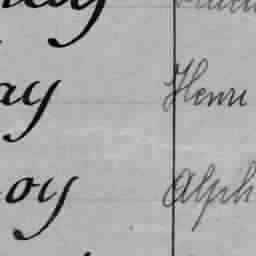 ay Henri
oy Alph